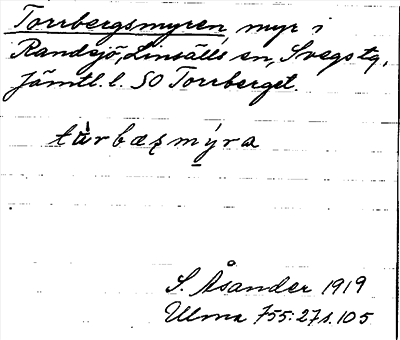 Torrbergsmyren, myr i
Randsjö, Linsälls sn, Svegs tg,
Jämtl. l. SO Torrberget.
tùrbæʂmýra
S. Åsander 1919
Ulma 755:27 s. 105